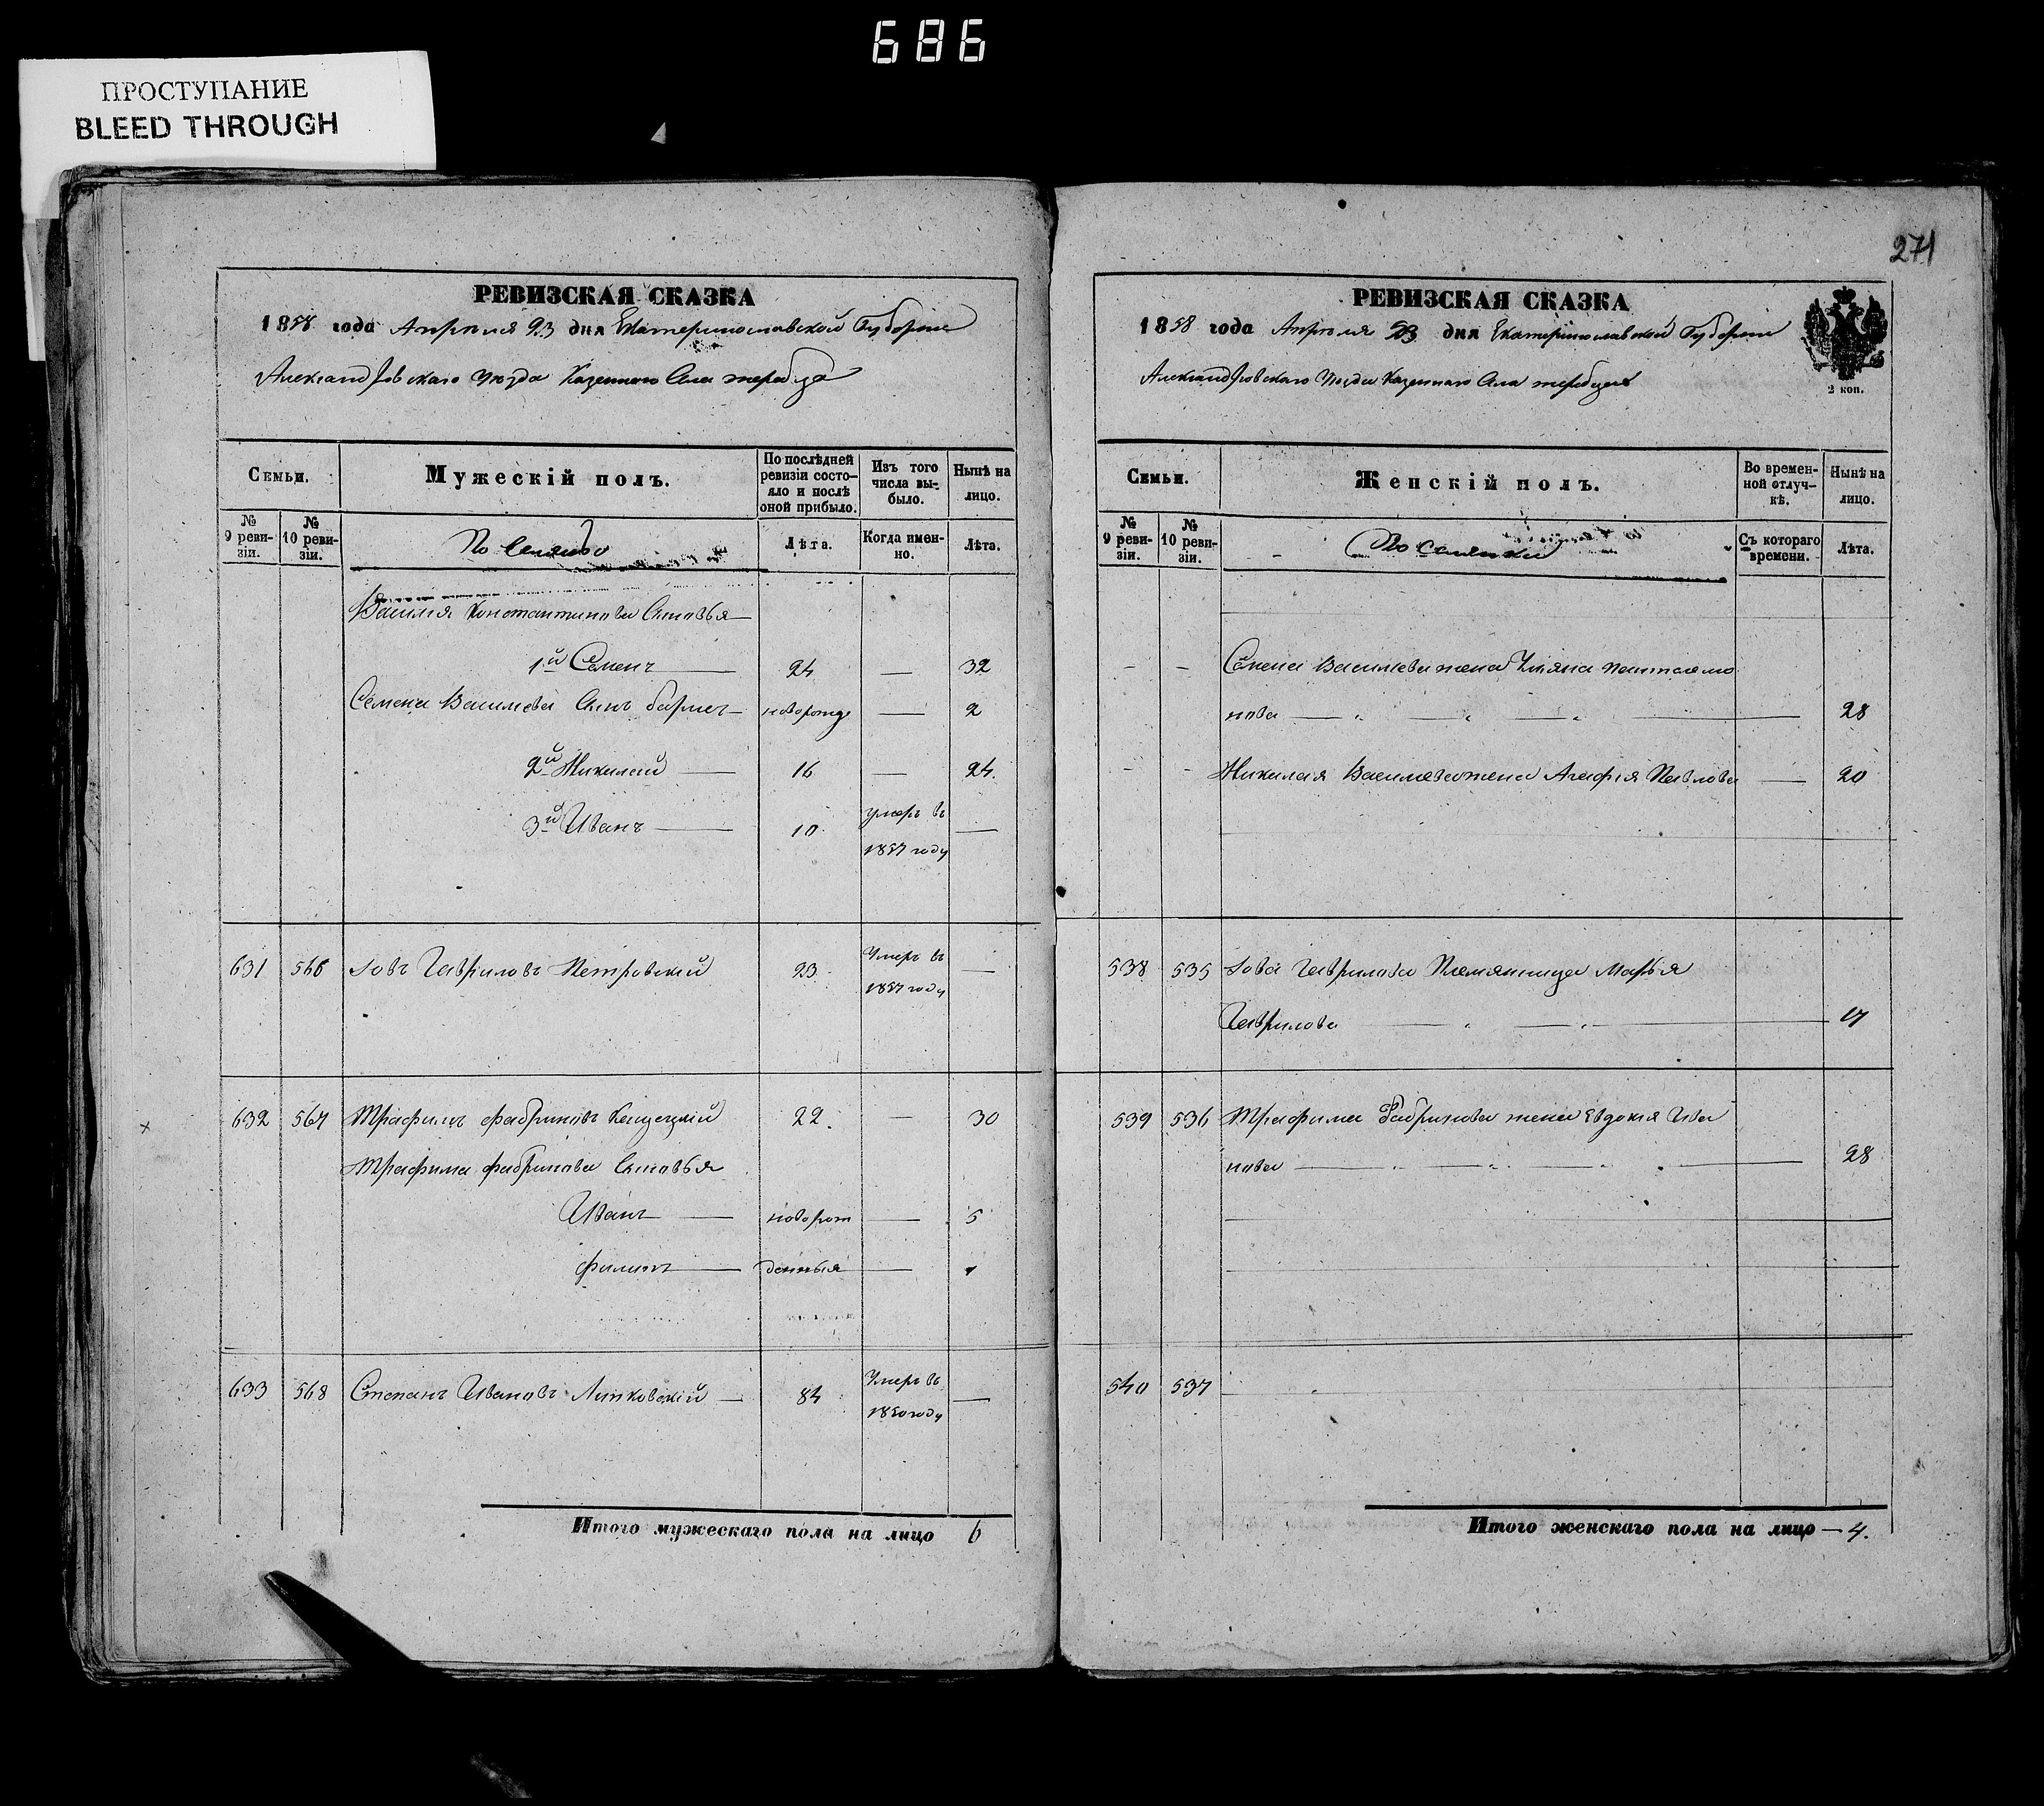 686
ПРОСТУПАНИЕ
BLEED THROUGH
РЕВИЗСКАЯ СКАЗКА
1858 года Апреля 23 дня Екатеринославской Губерніи
Александровскаго Уезда Казеннаго Села
Семьи.
Мужескій полъ.
По послѣдней ревизіи состо-
яло и послѣ
оной прибыло.
Изъ того
числа вы-
было.
Нынѣ на
лицо.
№
9 реви-
зіи.
№
10 реви-
зіи.
Лѣта.
Когда имен-
но.
Лѣта.
Василія Константинова Сыновья
1й Семенъ 24 — 32
Семена Васильева Сынъ новорожд — 2
2й Николай 16 — 24
3й Иванъ 10 умеръ въ —
1857 году
631 566 Іовъ Гавриловъ Петровскій 23 Умеръ въ —
1857 году
632 567 Трафимъ 22 — 30
Трафима Сыновья
Иванъ новорож — 5
Филипъ денныя — 1
633 568 Степанъ Ивановъ 84 Умеръ въ —
1850 году
Итого мужескаго пола на лицо 6
271
РЕВИЗСКАЯ СКАЗКА
1858 года Апреля 23 дня Екатеринославской Губерніи
Александровскаго Уезда Казеннаго Села
2 коп.
Семьи.
Женскій полъ.
Во времен-
ной отлуч-
кѣ.
Нынѣ на
лицо.
№
9 реви-
зіи.
№
10 реви-
зіи.
Съ котораго
времени.
Лѣта.
— — Семена Васильева жена Ульяна Пантелемо
нова — 28
— — Николая Васильева жена Агафія Павлова — 20
538 535 Іова Гаврилова Племянница Марья
Гаврилова — 17
539 536 Трафима жена Евдокія Ива
нова — 28
540 537
Итого женскаго пола на лицо — 4.